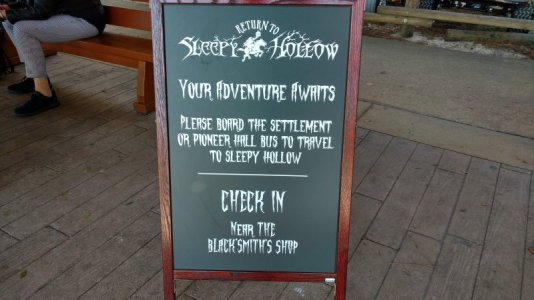 RETURN TO
SLEEPY HOLLOW
YOUR ADVENTURE AWAITS
PLEASE BOARD THE SETTLEMENT
OR PIONEER HALL BUS TO TRAVEL
TO SLEEPY HOLLOW
CHECK IN
NEAR THE
BLACKSMITH'S SHOP